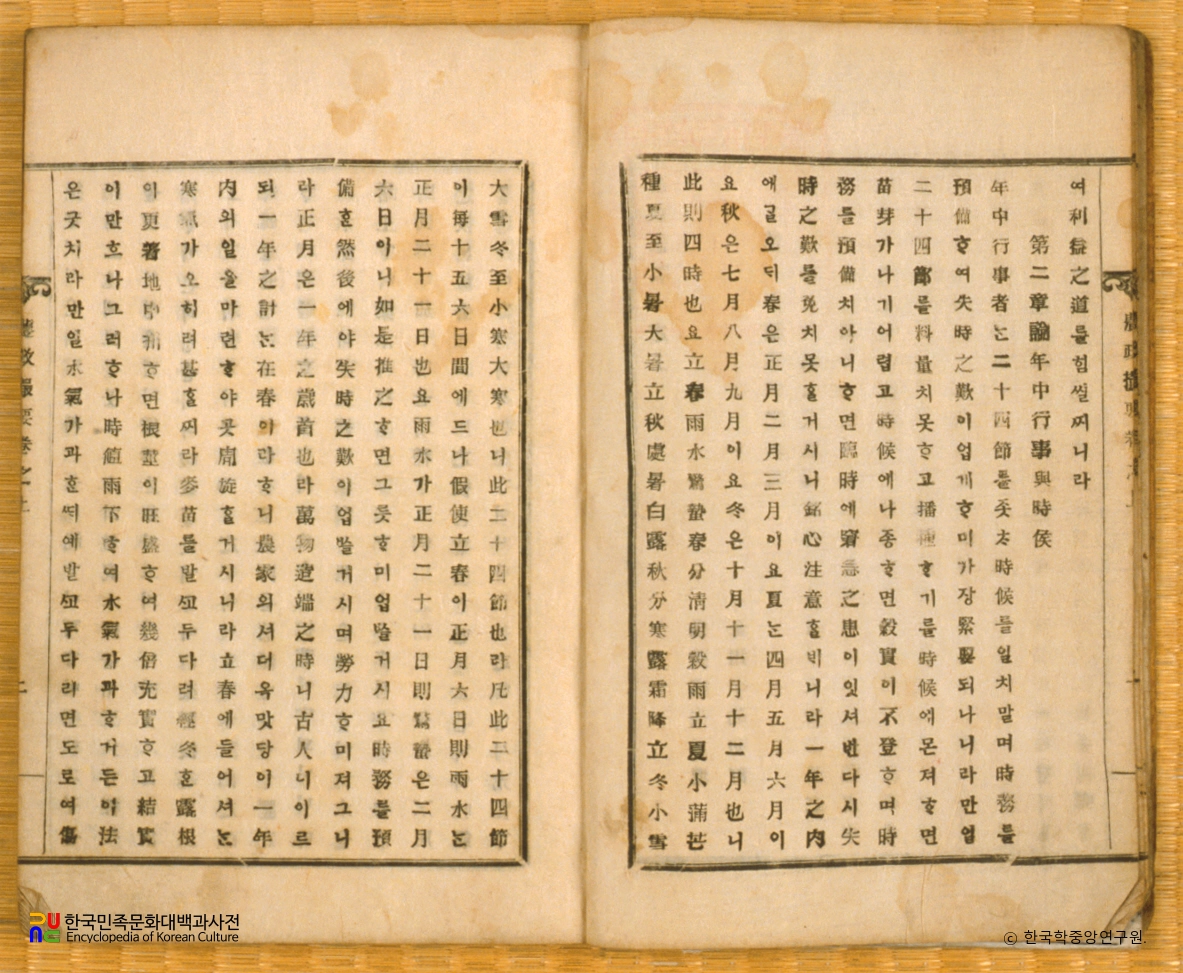 여리益之道를힘씰찌니라
第二章論年中行事與時侯
年中行事者는二十四節를좃초時候를일치말며時務를
預備ᄒᆞ여失時之歎이업게ᄒᆞ미가장緊要되나니라만업
二十四節를料量치못ᄒᆞ고播種ᄒᆞ기를時候에몬져ᄒᆞ면
苗芽가나기어렵고時候에나죵ᄒᆞ면穀實이不登ᄒᆞ며時
務를預備치아니ᄒᆞ면臨時에窘急之患이잇셔반다시失
時之歎를免치못ᄒᆞᆯ거시니銘心注意ᄒᆞᆯ비니라一年之內
에글오듸春은正月二月三月이요夏는四月五月六月이
요秋은七月八月九月이요冬은十月十一月十二月也니
此則四時也요立春雨水驚蟄春分清明穀雨立夏小滿芒
種夏至小暑大暑立秋處暑白露秋分寒露霜降立冬小雪
大雪冬至小寒大寒也니此二十四節也라凡此二十四節
이每十五六日間에드나假使立春이正月六日則雨水는
正月二十一日也요雨水가正月二十一日則驚蟄은二月
六日이니如是推之ᄒᆞ면그릇ᄒᆞ미업쓸거시요時務를預
備ᄒᆞᆫ然後에야失時之歎이업쓸거시며勞力ᄒᆞ미져그니
라正月은一年之歲首也라萬物造端之時니古人니이르
되一年之計는在春이라ᄒᆞ니農家의셔더욱맛당이一年
內의일을마련ᄒᆞ야곳周旋ᄒᆞᆯ거시니라立春에들어셔는
寒氣가오히려甚ᄒᆞᆯ찌라麥苗를발ᄭᅩ두다려經冬ᄒᆞᆫ露根
이更着地中ᄒᆞ면根莖이旺盛ᄒᆞ여幾倍充實ᄒᆞ고結實
이만흐나그러ᄒᆞ나時値雨下ᄒᆞ여水氣가과ᄒᆞ거든이法
은긋치라만일水氣가과ᄒᆞᆫᄯᅥ예발ᄭᅩ두다리면도로여傷
農政撮要卷之上
農政撮要卷之上
二
한국민족문화대백과사전
Encyclopedia of Korean Culture
ⓒ 한국학중앙연구원.